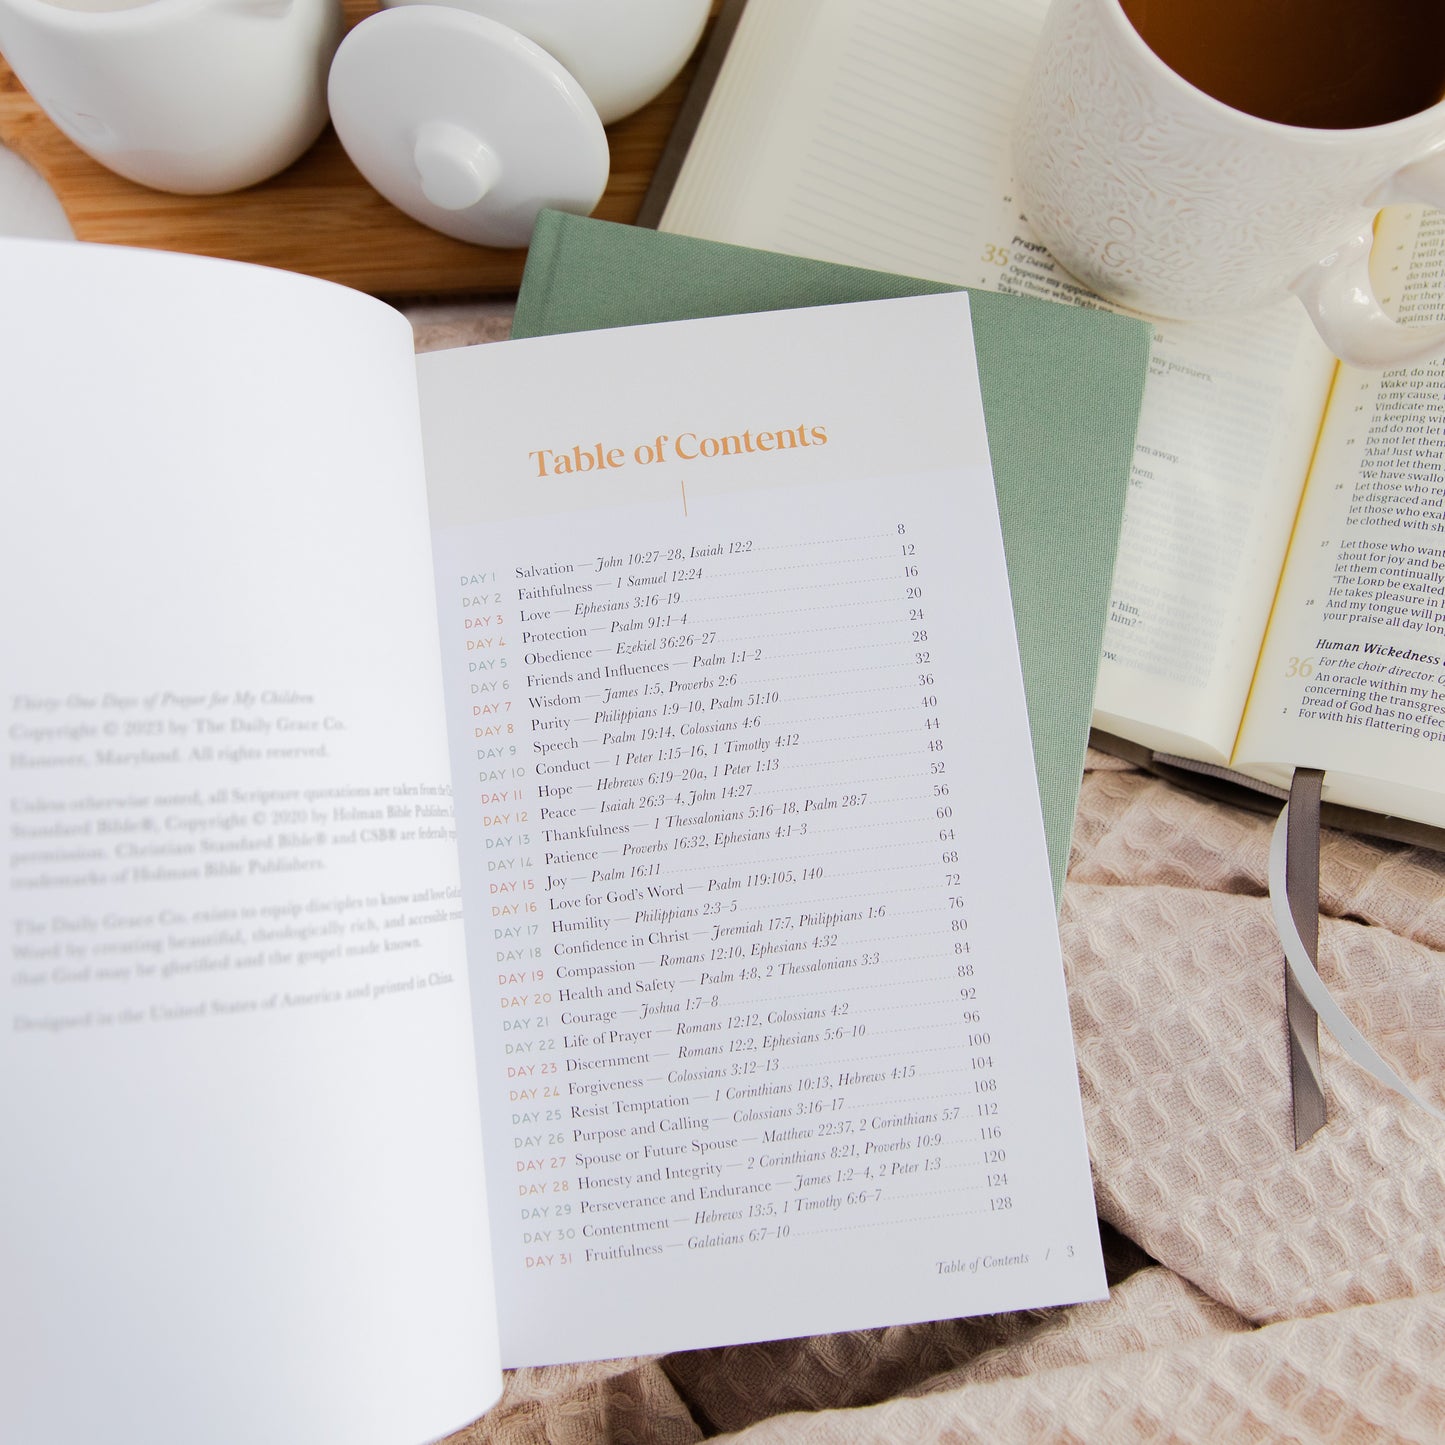 Thirty-One Days of Prayer for My Children
Copyright © 2023 by The Daily Grace Co.
Hanover, Maryland. All rights reserved.
Unless otherwise noted, all Scripture quotations are taken from the
Standard Bible®, Copyright © 2020 by Holman Bible Publishers.
permission. Christian Standard Bible® and CSB® are federally
trademarks of Holman Bible Publishers.
The Daily Grace Co. exists to equip disciples to know and love
Word by creating beautiful, theologically rich, and accessible
that God may be glorified and the gospel made known.
Designed in the United States of America and printed in China.
Table of Contents
DAY 1 Salvation — John 10:27–28, Isaiah 12:2 8
DAY 2 Faithfulness — 1 Samuel 12:24 12
DAY 3 Love — Ephesians 3:16–19 16
DAY 4 Protection — Psalm 91:1–4 20
DAY 5 Obedience — Ezekiel 36:26–27 24
DAY 6 Friends and Influences — Psalm 1:1–2 28
DAY 7 Wisdom — James 1:5, Proverbs 2:6 32
DAY 8 Purity — Philippians 1:9–10, Psalm 51:10 36
DAY 9 Speech — Psalm 19:14, Colossians 4:6 40
DAY 10 Conduct — 1 Peter 1:15–16, 1 Timothy 4:12 44
DAY 11 Hope — Hebrews 6:19–20a, 1 Peter 1:13 48
DAY 12 Peace — Isaiah 26:3–4, John 14:27 52
DAY 13 Thankfulness — 1 Thessalonians 5:16–18, Psalm 28:7 56
DAY 14 Patience — Proverbs 16:32, Ephesians 4:1–3 60
DAY 15 Joy — Psalm 16:11 64
DAY 16 Love for God's Word — Psalm 119:105, 140 68
DAY 17 Humility — Philippians 2:3–5 72
DAY 18 Confidence in Christ — Jeremiah 17:7, Philippians 1:6 76
DAY 19 Compassion — Romans 12:10, Ephesians 4:32 80
DAY 20 Health and Safety — Psalm 4:8, 2 Thessalonians 3:3 84
DAY 21 Courage — Joshua 1:7–8 88
DAY 22 Life of Prayer — Romans 12:12, Colossians 4:2 92
DAY 23 Discernment — Romans 12:2, Ephesians 5:6–10 96
DAY 24 Forgiveness — Colossians 3:12–13 100
DAY 25 Resist Temptation — 1 Corinthians 10:13, Hebrews 4:15 104
DAY 26 Purpose and Calling — Colossians 3:16–17 108
DAY 27 Spouse or Future Spouse — Matthew 22:37, 2 Corinthians 5:7 112
DAY 28 Honesty and Integrity — 2 Corinthians 8:21, Proverbs 10:9 116
DAY 29 Perseverance and Endurance — James 1:2–4, 2 Peter 1:3 120
DAY 30 Contentment — Hebrews 13:5, 1 Timothy 6:6–7 124
DAY 31 Fruitfulness — Galatians 6:7–10 128
Table of Contents / 3
Prayer
35 Of David.
Oppose my
fight those who fight me
Take
my pursuers,
em away.
hem.
r him,
him?"
Lord, do not
23 Wake up and
to my cause,
24 Vindicate me,
in keeping
and do not let
25 Do not let them
"Aha! Just what
Do not let them
"We have
26 Let those who
be disgraced and
let those who
be clothed with
27 Let those who want
shout for joy and
let them continually
"The LORD be exalted
He takes pleasure in
28 And my tongue will
your praise all day
Human Wickedness
36 For the choir director.
An oracle within my
concerning the
Dread of God has no
2 For with his flattering